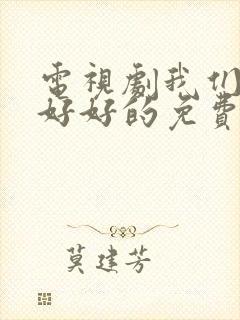 電視劇我们
好好的免費
莫建芳